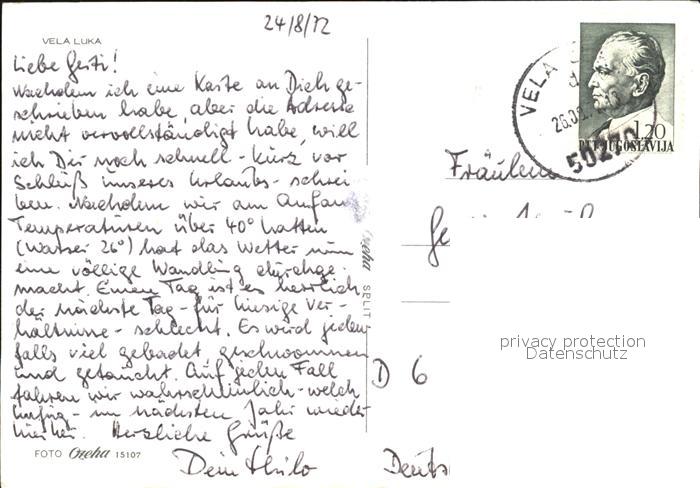 24/8/72
VELA LUKA
Liebe Gerti!
Nachdem ich eine Karte an Dich ge-
schrieben habe, aber die Adresse
nicht vervollständigt habe, will
ich Dir noch schnell - kurz vor
Schluß unseres Urlaubs - schrei
ben. Nachdem wir am Anfang
Temperaturen über 40° hatten
(Wasser 26°) hat das Wetter nun
eine völlige Wandlung durchge-
macht. Einen Tag ist es herrlich,
der nächste Tag - für hiesige Ver-
hältnisse - schlecht. Es wird jeden
falls viel gebadet, geschwommen
und getaucht. Auf jeden Fall
fahren wir wahrscheinlich - welch
Unfug - im nächsten Jahr wieder
hierher. Herzliche Grüße
Dein Thilo
FOTO Oreha 15107
Oreha SPLIT
VELA
26.08.
50270
1,20
PTT JUGOSLAVIJA
Fräulein
Ge
D 6
Deuts
privacy protection
Datenschutz